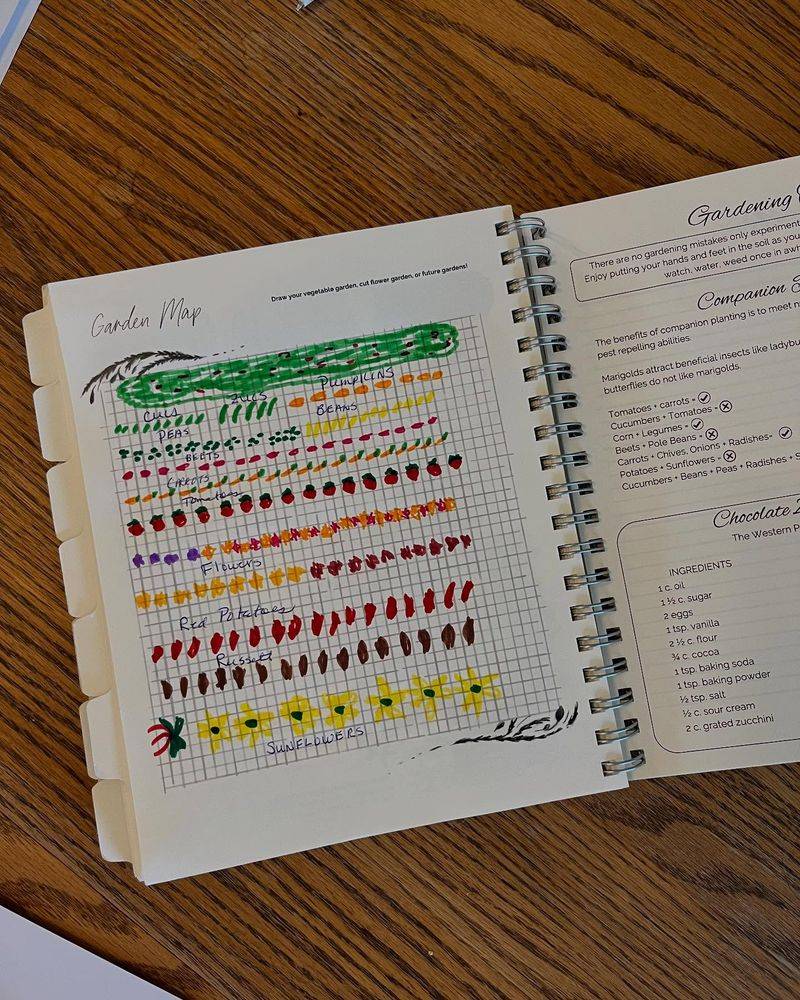 Garden Map
Draw your vegetable garden, cut flower garden, or future gardens!
PUMPKINS
CUCS ZUCS
BEANS
PEAS
BEETS
CARROTS
Tomatoes
Flowers
Red Potatoes
Russett
SUNFLOWERS
Gardening
There are no gardening mistakes only experiment
Enjoy putting your hands and feet in the soil as you
watch, water, weed once in aw
Companion
The benefits of companion planting is to meet
pest repelling abilities.
Marigolds attract beneficial insects like ladybu
butterflies do not like marigolds.
Tomatoes + carrots =
Cucumbers + Tomatoes =
Corn + Legumes =
Beets + Pole Beans =
Carrots + Chives, Onions + Radishes=
Potatoes + Sunflowers =
Cucumbers + Beans + Peas + Radishes + S
Chocolate
The Western P
INGREDIENTS
1 c. oil
1 ½ c. sugar
2 eggs
1 tsp. vanilla
2 ½ c. flour
¾ c. cocoa
1 tsp. baking soda
1 tsp. baking powder
½ tsp. salt
½ c. sour cream
2 c. grated zucchini